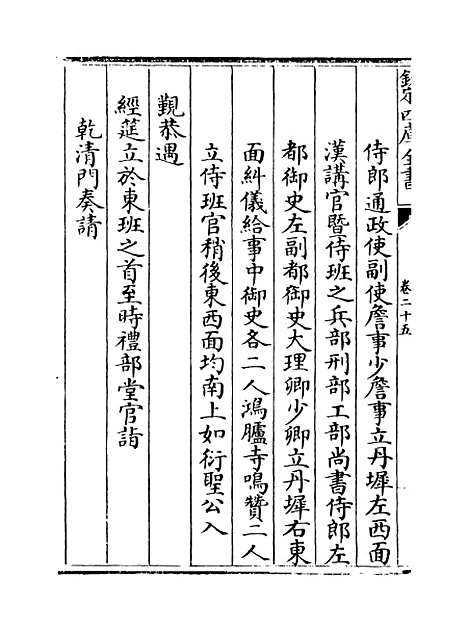 欽定四庫全書
卷二十五
侍郎通政使副使詹事少詹事立丹墀左西面
漢講官暨侍班之兵部刑部工部尚書侍郎左
都御史左副都御史大理卿少卿立丹墀右東
面糾儀給事中御史各二人鴻臚寺鳴贊二人
立侍班官稍後東西面均南上如衍聖公入
覲恭遇
經筵立於東班之首至時禮部堂官詣
乾清門奏請